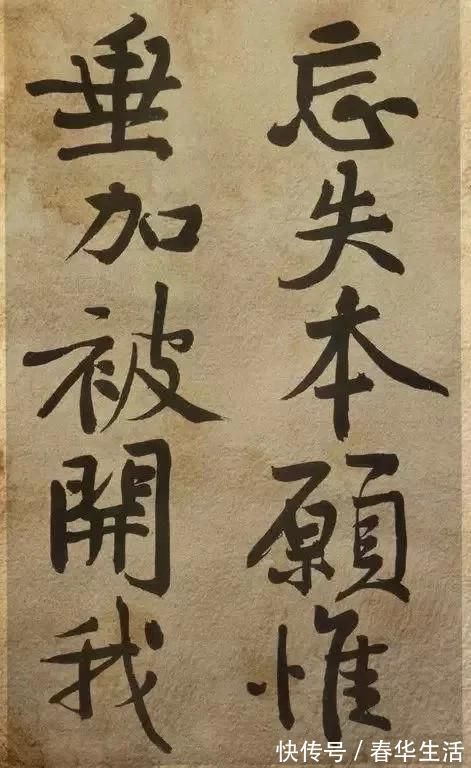 忘失本願惟
垂加被開我
快传号/春华生活